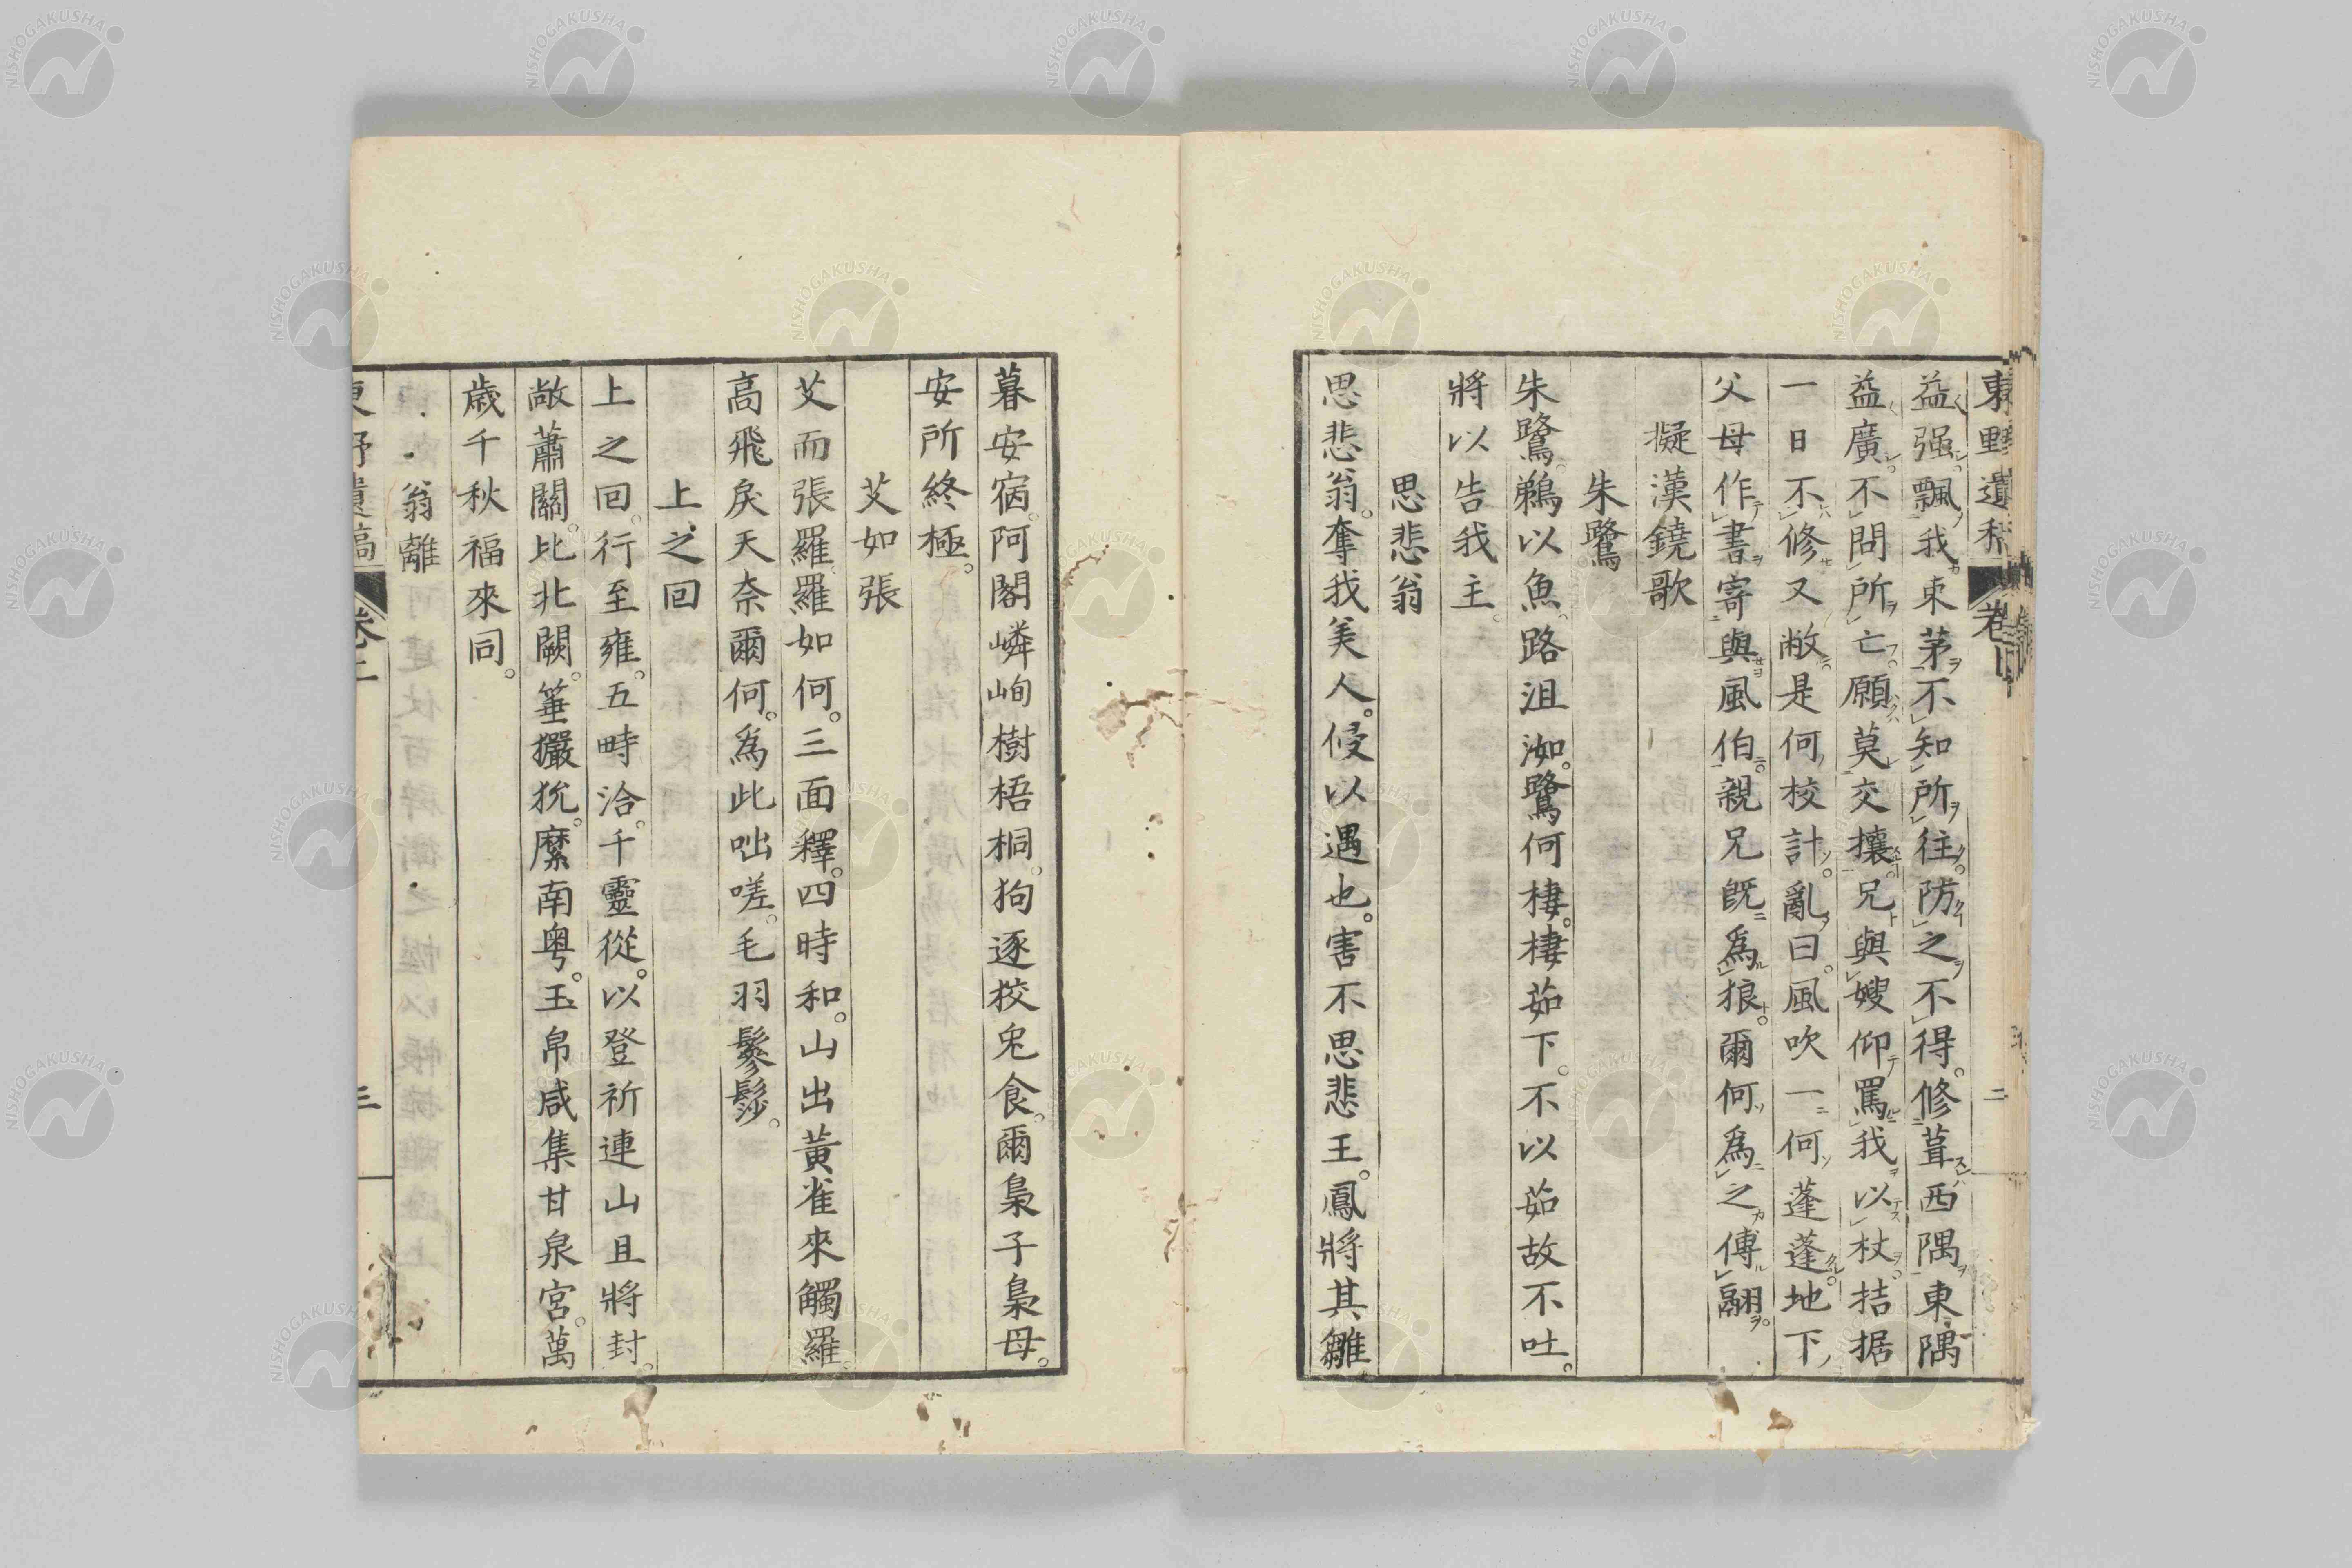 東野遺稿 卷上 二
益强飄我東茅不知所往防之不得。修葺西隅東隅
益廣不問所亡願莫交攘兄與嫂仰罵我以杖拮据
一日不修又敝是何校計亂曰。風吹一何蓬蓬地下
父母作書寄與風伯親兄既爲狼爾何爲之傅翮
擬漢鐃歌
朱鷺
朱鷺。鵜以魚。路沮洳。鷺何棲。棲茹下。不以茹故不吐。
將以告我主。
思悲翁
思悲翁。奪我美人。侵以遇也。害不思悲王。鳳將其雛
暮安宿。阿閣嶙峋樹梧桐。狗逐狡兎食。爾梟子梟母。
安所終極。
艾如張
艾而張羅。羅如何。三面釋。四時和。山出黃雀來觸羅。
高飛戾天奈爾何。爲此咄嗟。毛羽鬖髿。
上之回
上之回。行至雍。五畤洽。千靈從。以登祈連山且將封。
敞蕭關。比北闕。箠玁狁。縻南粤。玉帛咸集甘泉宮。萬
歲千秋福來同。
翁離
東野遺稿 卷上 三
NISHOGAKUSHA